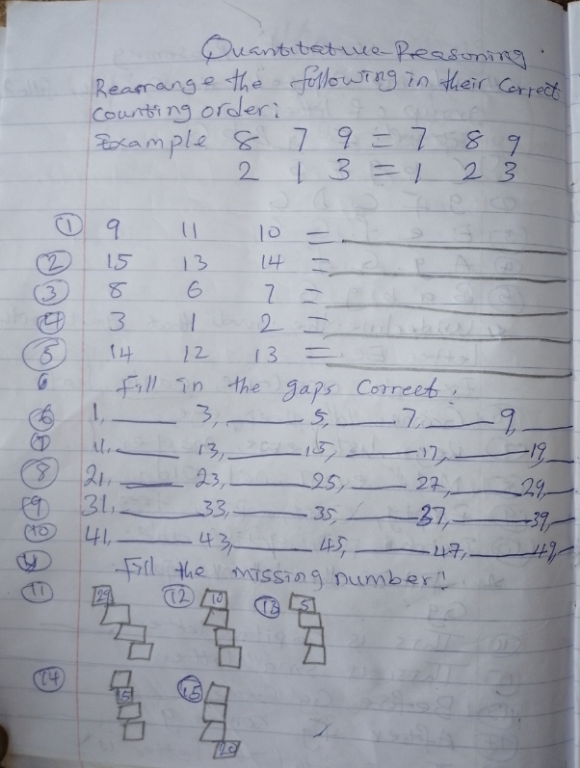 Quantitative Reasoning
Rearrange the following in their correct
counting order:
Example 8 7 9 = 7 8 9
2 1 3 = 1 2 3
① 9 11 10 = ______
② 15 13 14 = ______
③ 8 6 7 = ______
④ 3 1 2 = ______
⑤ 14 12 13 = ______
6 Fill in the gaps correct.
⑥ 1, ____ 3, ____ 5, ____ 7, ____ 9, ____
⑦ 11, ____ 13, ____ 15, ____ 17, ____ 19, ____
⑧ 21, ____ 23, ____ 25, ____ 27, ____ 29, ____
⑨ 31, ____ 33, ____ 35, ____ 37, ____ 39, ____
⑩ 41, ____ 43, ____ 45, ____ 47, ____ 49, ____
Fill the missing number!
⑪ 29 ⑫ 10 ⑬ 5
⑭ 15 ⑮ 20